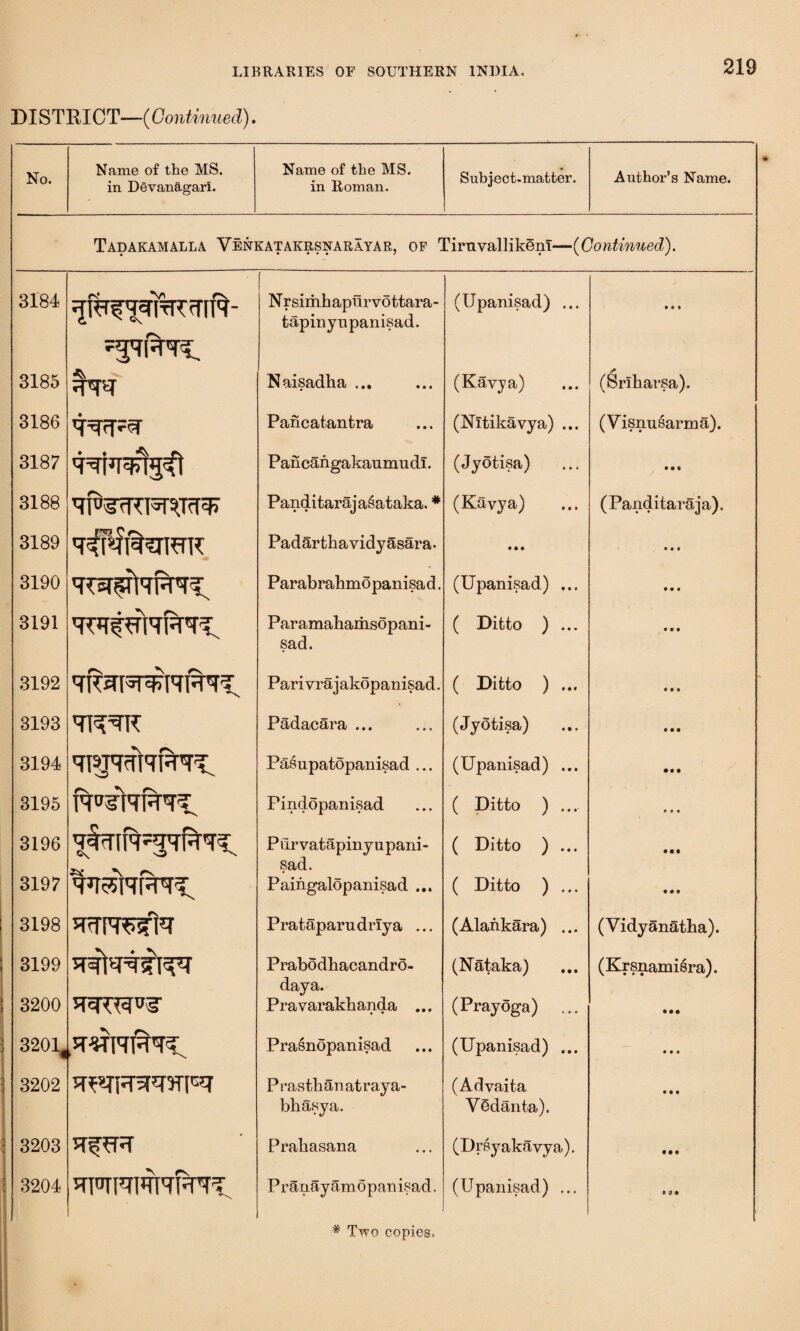 LIBRARIES OF SOUTHERN INDIA. 219
DISTRICT—(Continued).
No. Name of the MS. in Dēvanāgarī. Name of the MS. in Roman. Subject-matter. Author's Name.
Taḍakamalla Veṅkaṭakṛṣṇarāyar, of Tiruvallikēṇī—(Continued).
3184 नृसिंहपूर्वोत्तरतापि- Nṛsiṁhapūrvōttara- (Upaniṣad) ... ...
न्युपनिषद् tāpinyupaniṣad.
3185 नैषध Naiṣadha ... ... (Kāvya) ... (Śrīharṣa).
3186 पञ्चतन्त्र Pañcatantra ... (Nītikāvya) ... (Viṣṇuśarmā).
3187 पञ्चाङ्गकौमुदी Pañcāṅgakaumudī. (Jyōtiṣa) ... ...
3188 पण्डितराजशतक Paṇḍitarājaśataka. * (Kāvya) ... (Paṇḍitarāja).
3189 पदार्थविद्यासार Padārthavidyāsāra. ... ...
3190 परब्रह्मोपनिषद् Parabrahmōpaniṣad. (Upaniṣad) ... ...
3191 परमहंसोपनिषद् Paramahaṁsōpani- ( Ditto ) ... ...
ṣad.
3192 परिव्राजकोपनिषद् Parivrājakōpaniṣad. ( Ditto ) ... ...
3193 पादचार Pādacāra ... ... (Jyōtiṣa) ... ...
3194 पाशुपतोपनिषद् Pāśupatōpaniṣad ... (Upaniṣad) ... ...
3195 पिण्डोपनिषद् Piṇḍōpaniṣad ... ( Ditto ) ... ...
3196 पूर्वतापिन्युपनिषद् Pūrvatāpinyupani- ( Ditto ) ... ...
ṣad.
3197 पैङ्गलोपनिषद् Paiṅgalōpaniṣad ... ( Ditto ) ... ...
3198 प्रतापरुद्रीय Pratāparudrīya ... (Alaṅkāra) ... (Vidyānātha).
3199 प्रबोधचन्द्रोदय Prabōdhacandrō- (Nāṭaka) ... (Kṛṣṇamiśra).
daya.
3200 प्रवरखण्ड Pravarakhaṇḍa ... (Prayōga) ... ...
3201 प्रश्नोपनिषद् Praśnōpaniṣad ... (Upaniṣad) ... ...
3202 प्रस्थानत्रयभाष्य Prasthānatraya- (Advaita ...
bhāṣya. Vēdānta).
3203 प्रहसन Prahasana ... (Dṛśyakāvya). ...
3204 प्राणायामोपनिषद् Prāṇāyāmōpaniṣad. (Upaniṣad) ... ...
* Two copies.